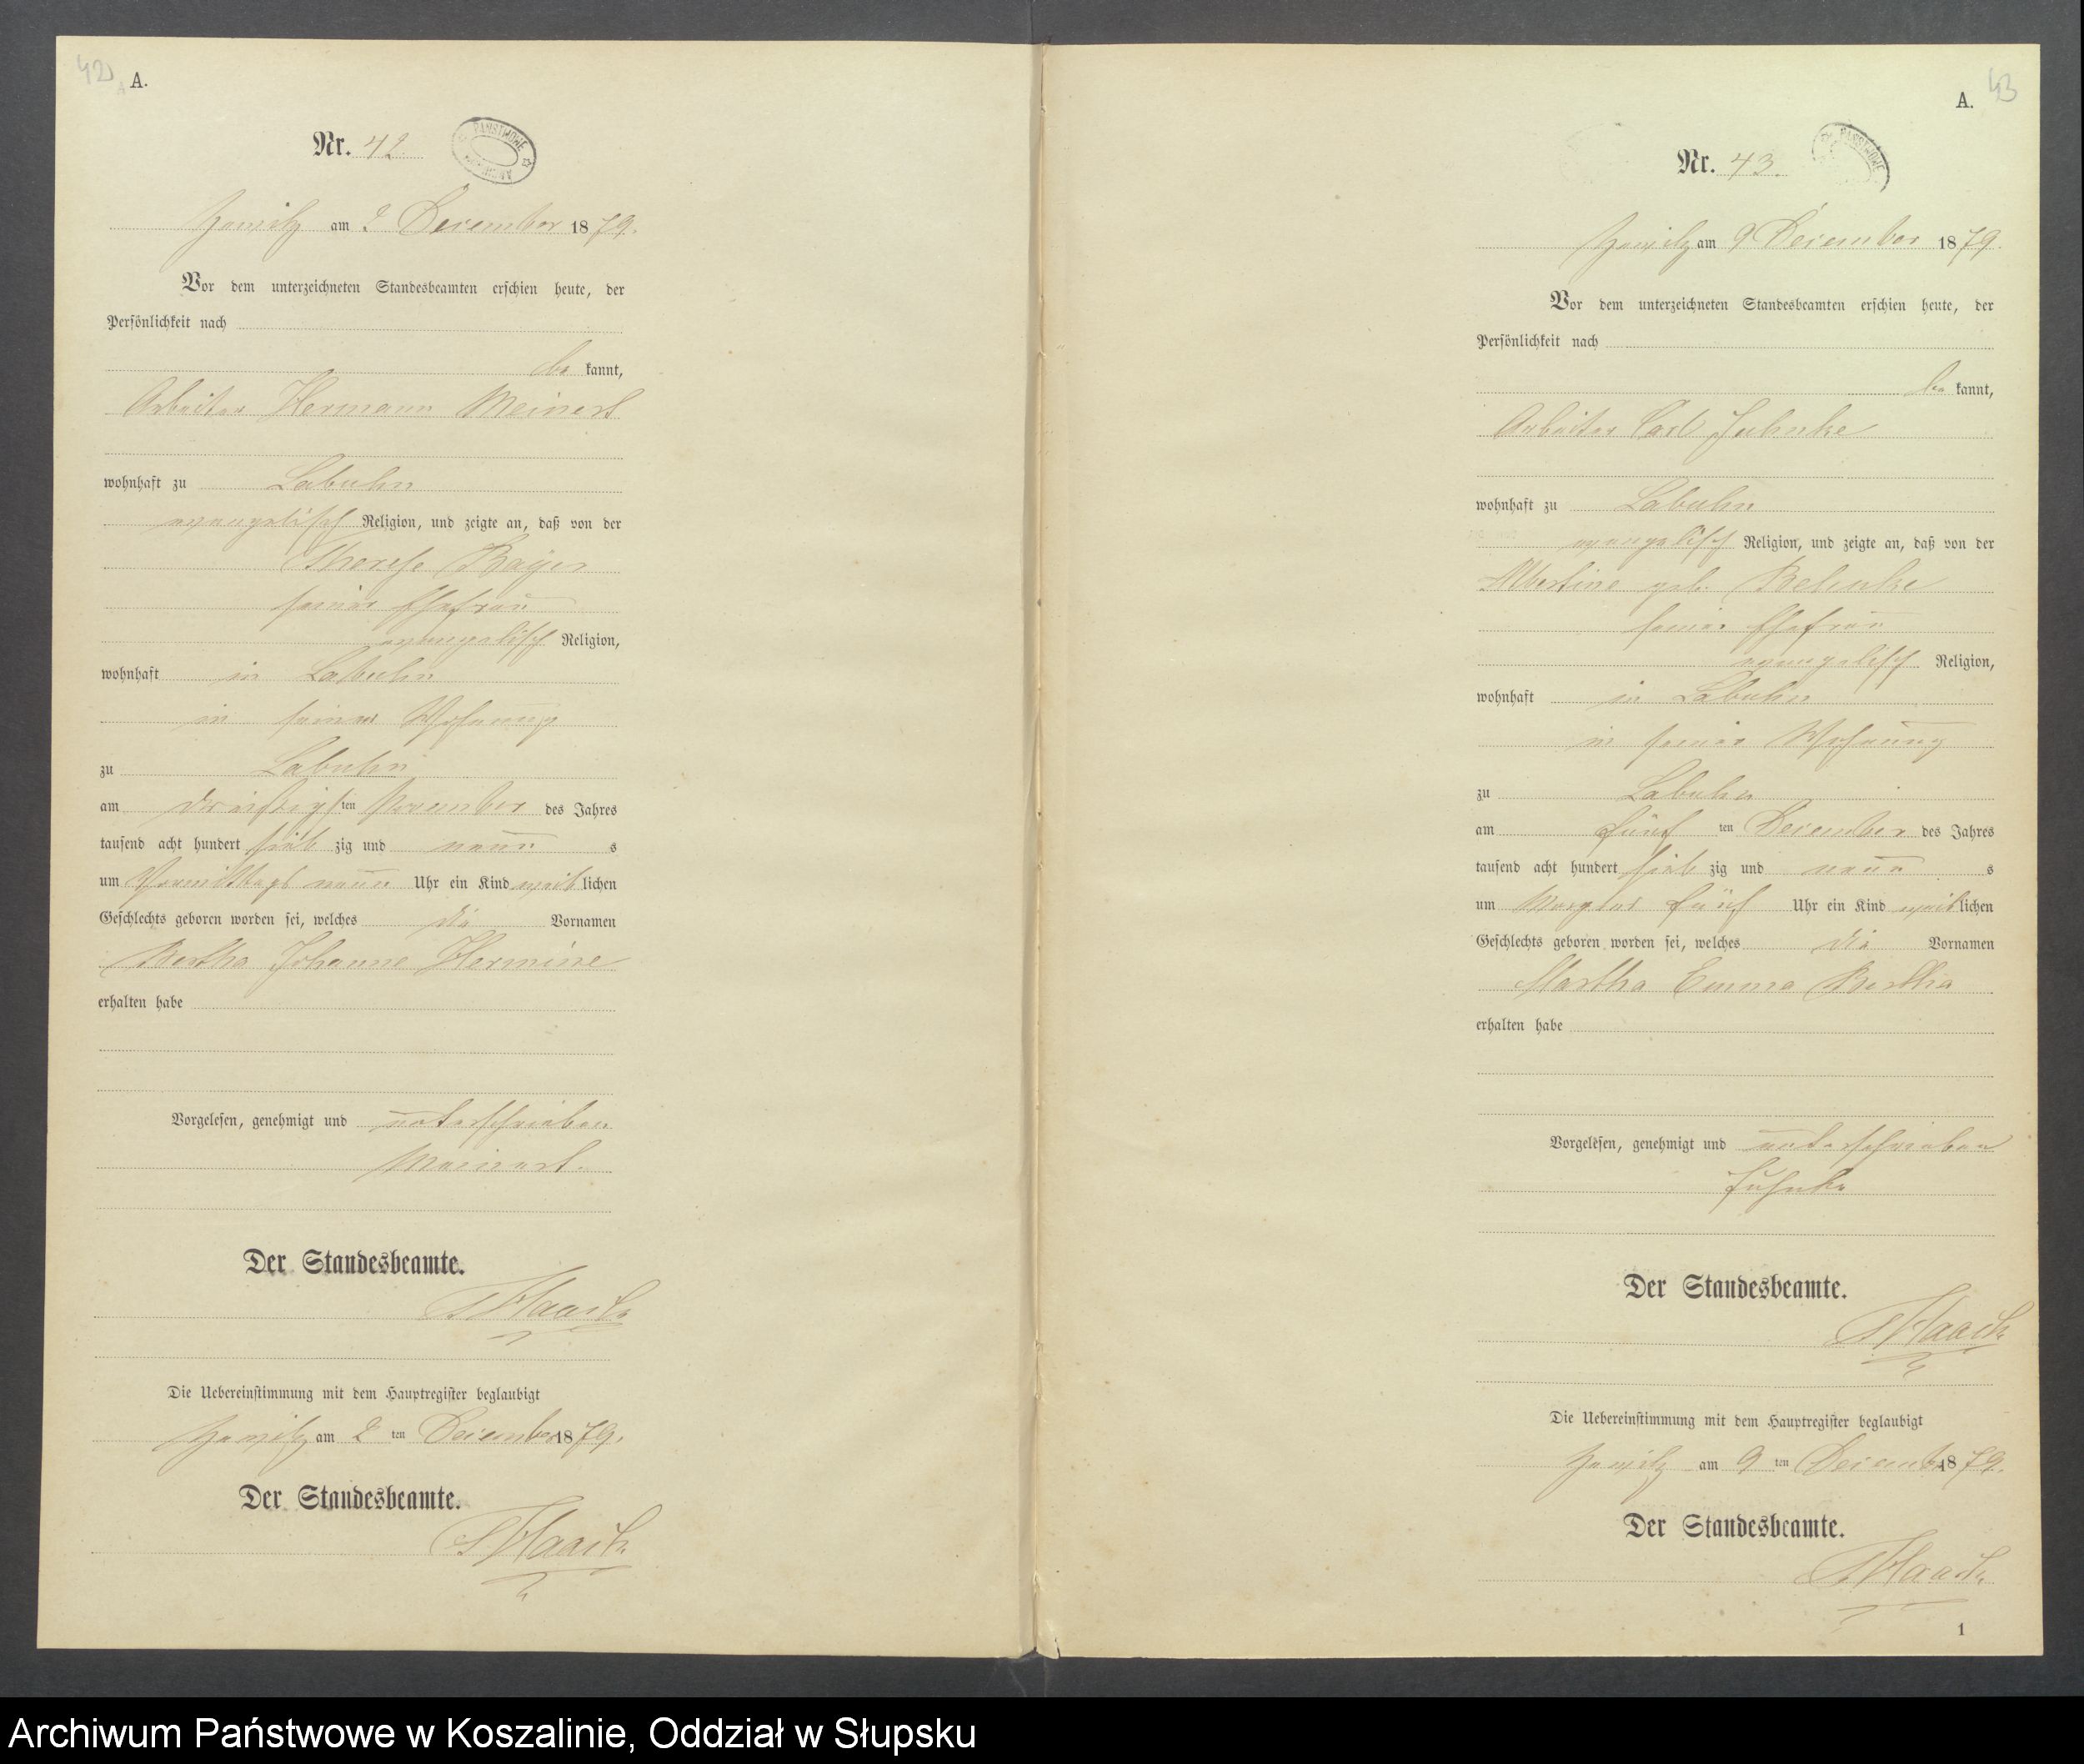 42
A.
Nr. 42.
PAŃSTWOWE
am 2 December 1879.
Vor dem unterzeichneten Standesbeamten erschien heute, der
Persönlichkeit nach
be kannt,
Arbeiter Hermann Meinert
wohnhaft zu Labuhn
evangelisch Religion, und zeigte an, daß von der
Therese
seiner Ehefrau
evangelisch Religion,
wohnhaft in Labuhn
in seiner Wohnung
zu Labuhn
am dreißigsten November des Jahres
tausend acht hundert sieb zig und neun s
um Vormittags neun Uhr ein Kind weib lichen
Geschlechts geboren worden sei, welches die Vornamen
Bertha Johanne Hermine
erhalten habe
Vorgelesen, genehmigt und unterschrieben
Meinert.
Der Standesbeamte.
Die Uebereinstimmung mit dem Hauptregister beglaubigt
am 2 ten December 1879.
Der Standesbeamte.
43
A.
Nr. 43.
PAŃSTWOWE
am 9 December 1879.
Vor dem unterzeichneten Standesbeamten erschien heute, der
Persönlichkeit nach
be kannt,
Arbeiter Carl
wohnhaft zu Labuhn
evangelisch Religion, und zeigte an, daß von der
Albertine geb.
seiner Ehefrau
evangelisch Religion,
wohnhaft in Labuhn
in seiner Wohnung
zu Labuhn
am fünf ten December des Jahres
tausend acht hundert sieb zig und neun s
um Morgens fünf Uhr ein Kind weib lichen
Geschlechts geboren worden sei, welches die Vornamen
Martha Emma Bertha
erhalten habe
Vorgelesen, genehmigt und unterschrieben
Der Standesbeamte.
Die Uebereinstimmung mit dem Hauptregister beglaubigt
am 9 ten December 1879.
Der Standesbeamte.
1
Archiwum Państwowe w Koszalinie, Oddział w Słupsku